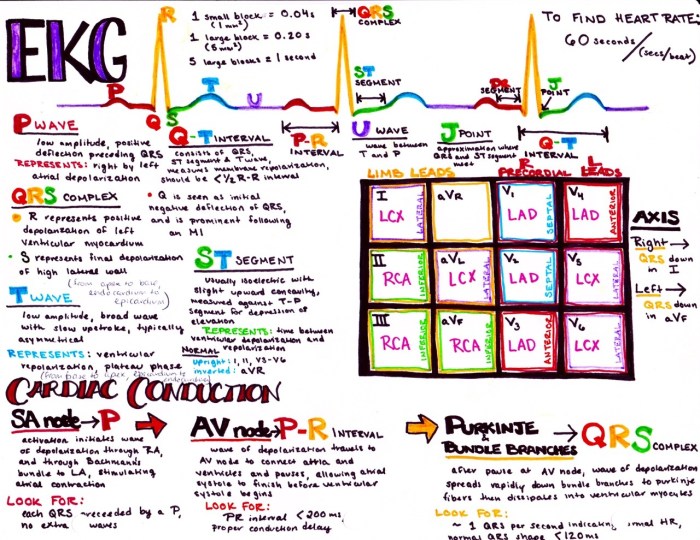 EKG
1 small block = 0.04s
(1 mm²)
1 large block = 0.20s
(5 mm²)
5 large blocks = 1 second
QRS
COMPLEX
TO FIND HEART RATE:
60 seconds/(secs/beat)
R
P
Q
S
T
U
ST
SEGMENT
PR
SEGMENT
J
POINT
P-R
INTERVAL
Q-T
INTERVAL
P WAVE
low amplitude, positive
deflection preceding QRS
REPRESENTS: right by left
atrial depolarization
Q-T INTERVAL
consists of QRS,
ST segment & T wave,
measures membrane repolarization,
should be <½ R-R interval
U WAVE
wave between
T and P
J POINT
approximation where
QRS and ST segment
meet
QRS COMPLEX
• R represents positive
depolarization of left
ventricular myocardium
• S represents final depolarization
of high lateral wall
(from apex to base,
endocardium to
epicardium)
• Q is seen as initial
negative deflection of QRS,
and is prominent following
an MI
ST SEGMENT
usually isoelectric with
slight upward concavity,
measured against T-P
segment for depression or
elevation
REPRESENTS: time between
ventricular depolarization and
repolarization
NORMAL
upright: I, II, V3-V6
inverted: aVR
T WAVE
low amplitude, broad wave
with slow upstroke, typically
asymmetrical
REPRESENTS: ventricular
repolarization, plateau phase
(from base to apex, epicardium to
endocardium)
LIMB LEADS
PRECORDIAL LEADS
I
LCX
LATERAL
aVR
V1
LAD
SEPTAL
V4
LAD
ANTERIOR
II
RCA
INFERIOR
aVL
LCX
LATERAL
V2
LAD
SEPTAL
V5
LCX
LATERAL
III
RCA
INFERIOR
aVF
RCA
INFERIOR
V3
LAD
ANTERIOR
V6
LCX
LATERAL
AXIS
Right →
QRS down
in I
Left →
QRS down
in aVF
CARDIAC CONDUCTION
SA node → P
activation initiates wave
of depolarization through RA,
and through Bachmann's
bundle to LA, stimulating
atrial contraction
LOOK FOR:
each QRS preceeded by a P,
no extra waves
AV node → P-R INTERVAL
wave of depolarization travels to
AV node to connect atria and
ventricles and pauses, allowing atrial
systole to finish before ventricular
systole begins
LOOK FOR:
PR interval <200 ms,
proper conduction delay
PURKINJE
&
BUNDLE BRANCHES → QRS COMPLEX
after pause at AV node, wave of depolarization
spreads rapidly down bundle branches to purkinje
fibers then dissipates into ventricular myocytes
LOOK FOR:
~ 1 QRS per second indicating normal HR,
normal QRS shape <120ms